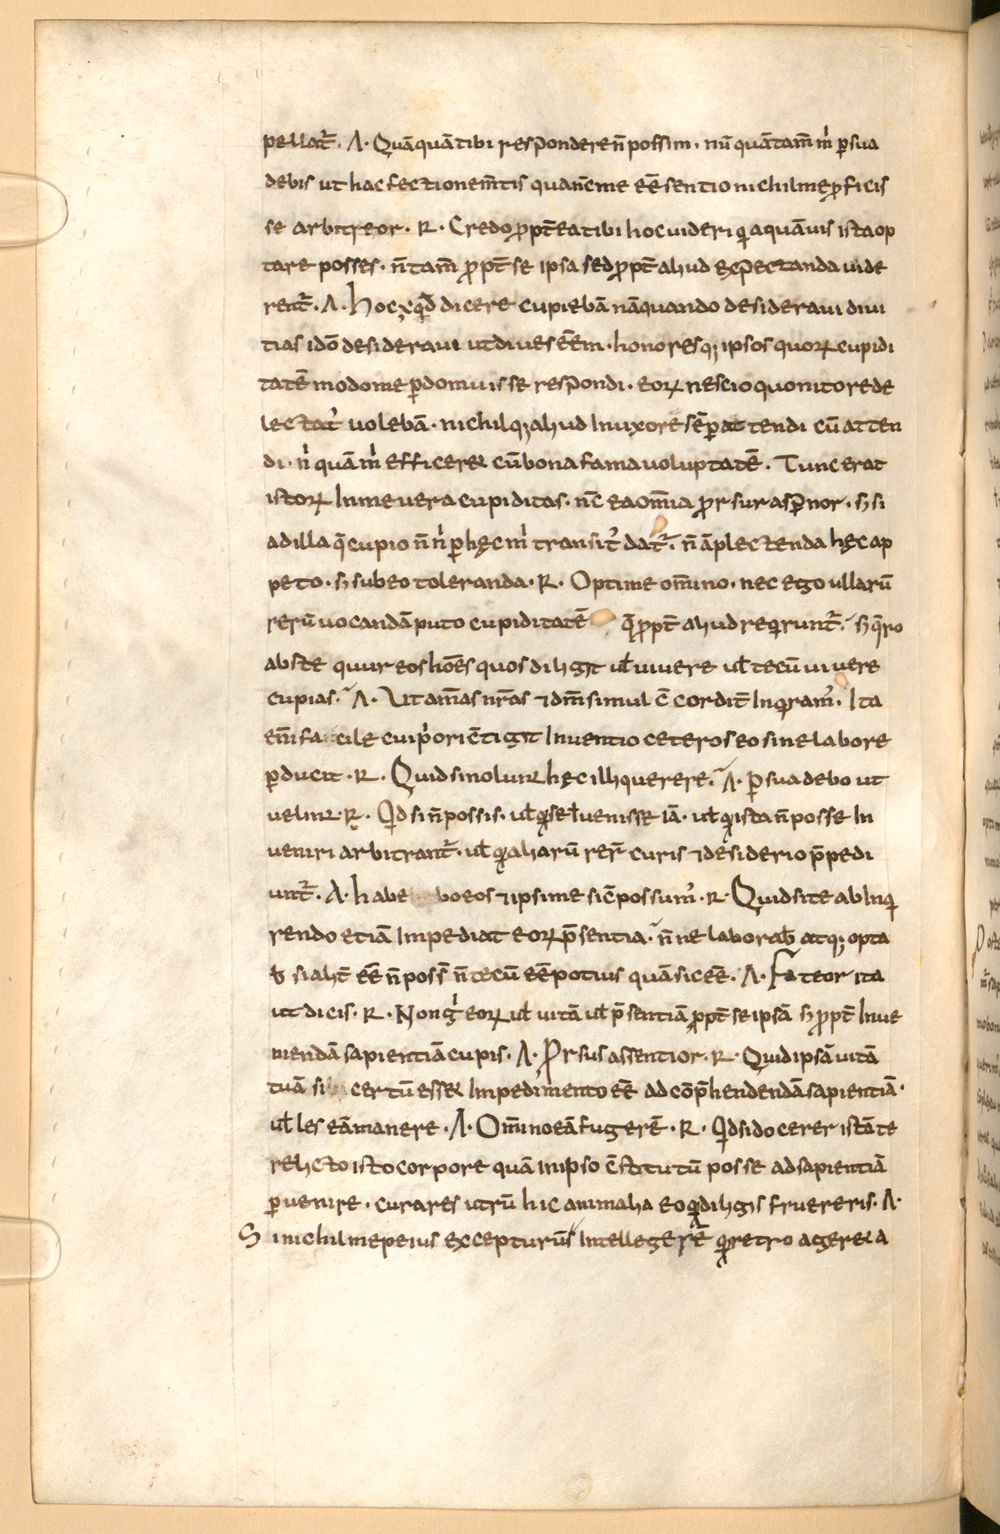 pellat᷑. A. Quāquā tibi respondere n̄ possim. nū quā tam̄ m̍ p̱sua
debis ut hac fectione m̄tis quan̄cme eē sentio nichil me ꝓficis
se arbitreor. R. Credo ꝓpt̄ea tibi hoc uideri q̍a quāuis ista op
tare posses. n̄ tam̄ ꝓpt̄ se ipsa sed ꝓpt̄ aliud exspectanda uide
rent᷑. A. hoc exq̍d dicere cupiebā nā quando desideraui diui
tias idō desideraui ut diues eēm. honoresq; ipsos quoꝝ cupidi
tatē modo me p̱domuisse respondi. eoꝝ nescio quo nitore de
lectat᷑ uolebā. nichilq; aliud In uxore sēp̱ attendi cū atten
di. n̍ quā m̍ efficere& cū bona fama uoluptatē. Tunc erat
istoꝝ In me uera cupiditas. n̄c ea om̄ia ꝓrsus aspernor. s; si
ad illa q̄ cupio n̄ n̍ p̱ hęc m̍ transit᷑ dat᷑. n̄ āplectenda hęc ap
peto. s; subeo toleranda. R. Optime om̄ino. nec ego ullarū
rerū uocandā puto cupiditatē q̄ ꝓpt̄ aliud req̍runt᷑. s; q̄ro
abs te quur eos hoēs quos diligit ut̄ uiuere ut̄ tecū uiuere
cupias. A. Ut am̄as nr̄as & dm̄ simul c̄cordit̄ Inq̍ram᷒. Ita
em̄ facile cui p̍ori c̄tigit Inuentio ceteros eo sine labore
p̱ducit. R. Quid si nolunt hęc illi querere. A. P̱suadebo ut
uelint. R. Qd si n̄ possis. ut̄ q̍ se Inuenisse iā. ut̄ q̍ ista n̄ posse In
ueniri arbitrant᷑. ut̄ q̍ aliarū rer̄ curis & desiderio p̄pedi
unt᷑. A. habebo eos & ipsi me sic̄ possum᷒. R. Quid si te ab Inq̍
rendo etiā Impediat eoꝝ p̄sentia. n̄ne laborab̄ atq; opta
b̄ si alit̄ eē n̄ poss̄ n̄ tecū eē potius quā sic eē. A. Fateor ita
ut dicis. R. Non g̍ eoꝝ ut̄ uitā ut̄ p̄sentiā ꝓpt̄ se ipsā s; ꝓpt̄ Inue
niendā sapientiā cupis. A. Ꝓrsus assentior. R. Quid ipsā uitā
tuā si certū esse& Impedimento eē ad cōp̄hendendā sapientiā.
ut̄les eā manere. A. Om̄ino eā fugerē. R. Qd si docerer istā te
relicto isto corpore quā in ipso c̄stitutū posse ad sapientiā
p̱uenire. curares utrū hic an in alia eo q̍d diligis fruereris. A.
Si nichil me peius excepturū Intellegerē q̍ retro agere& a